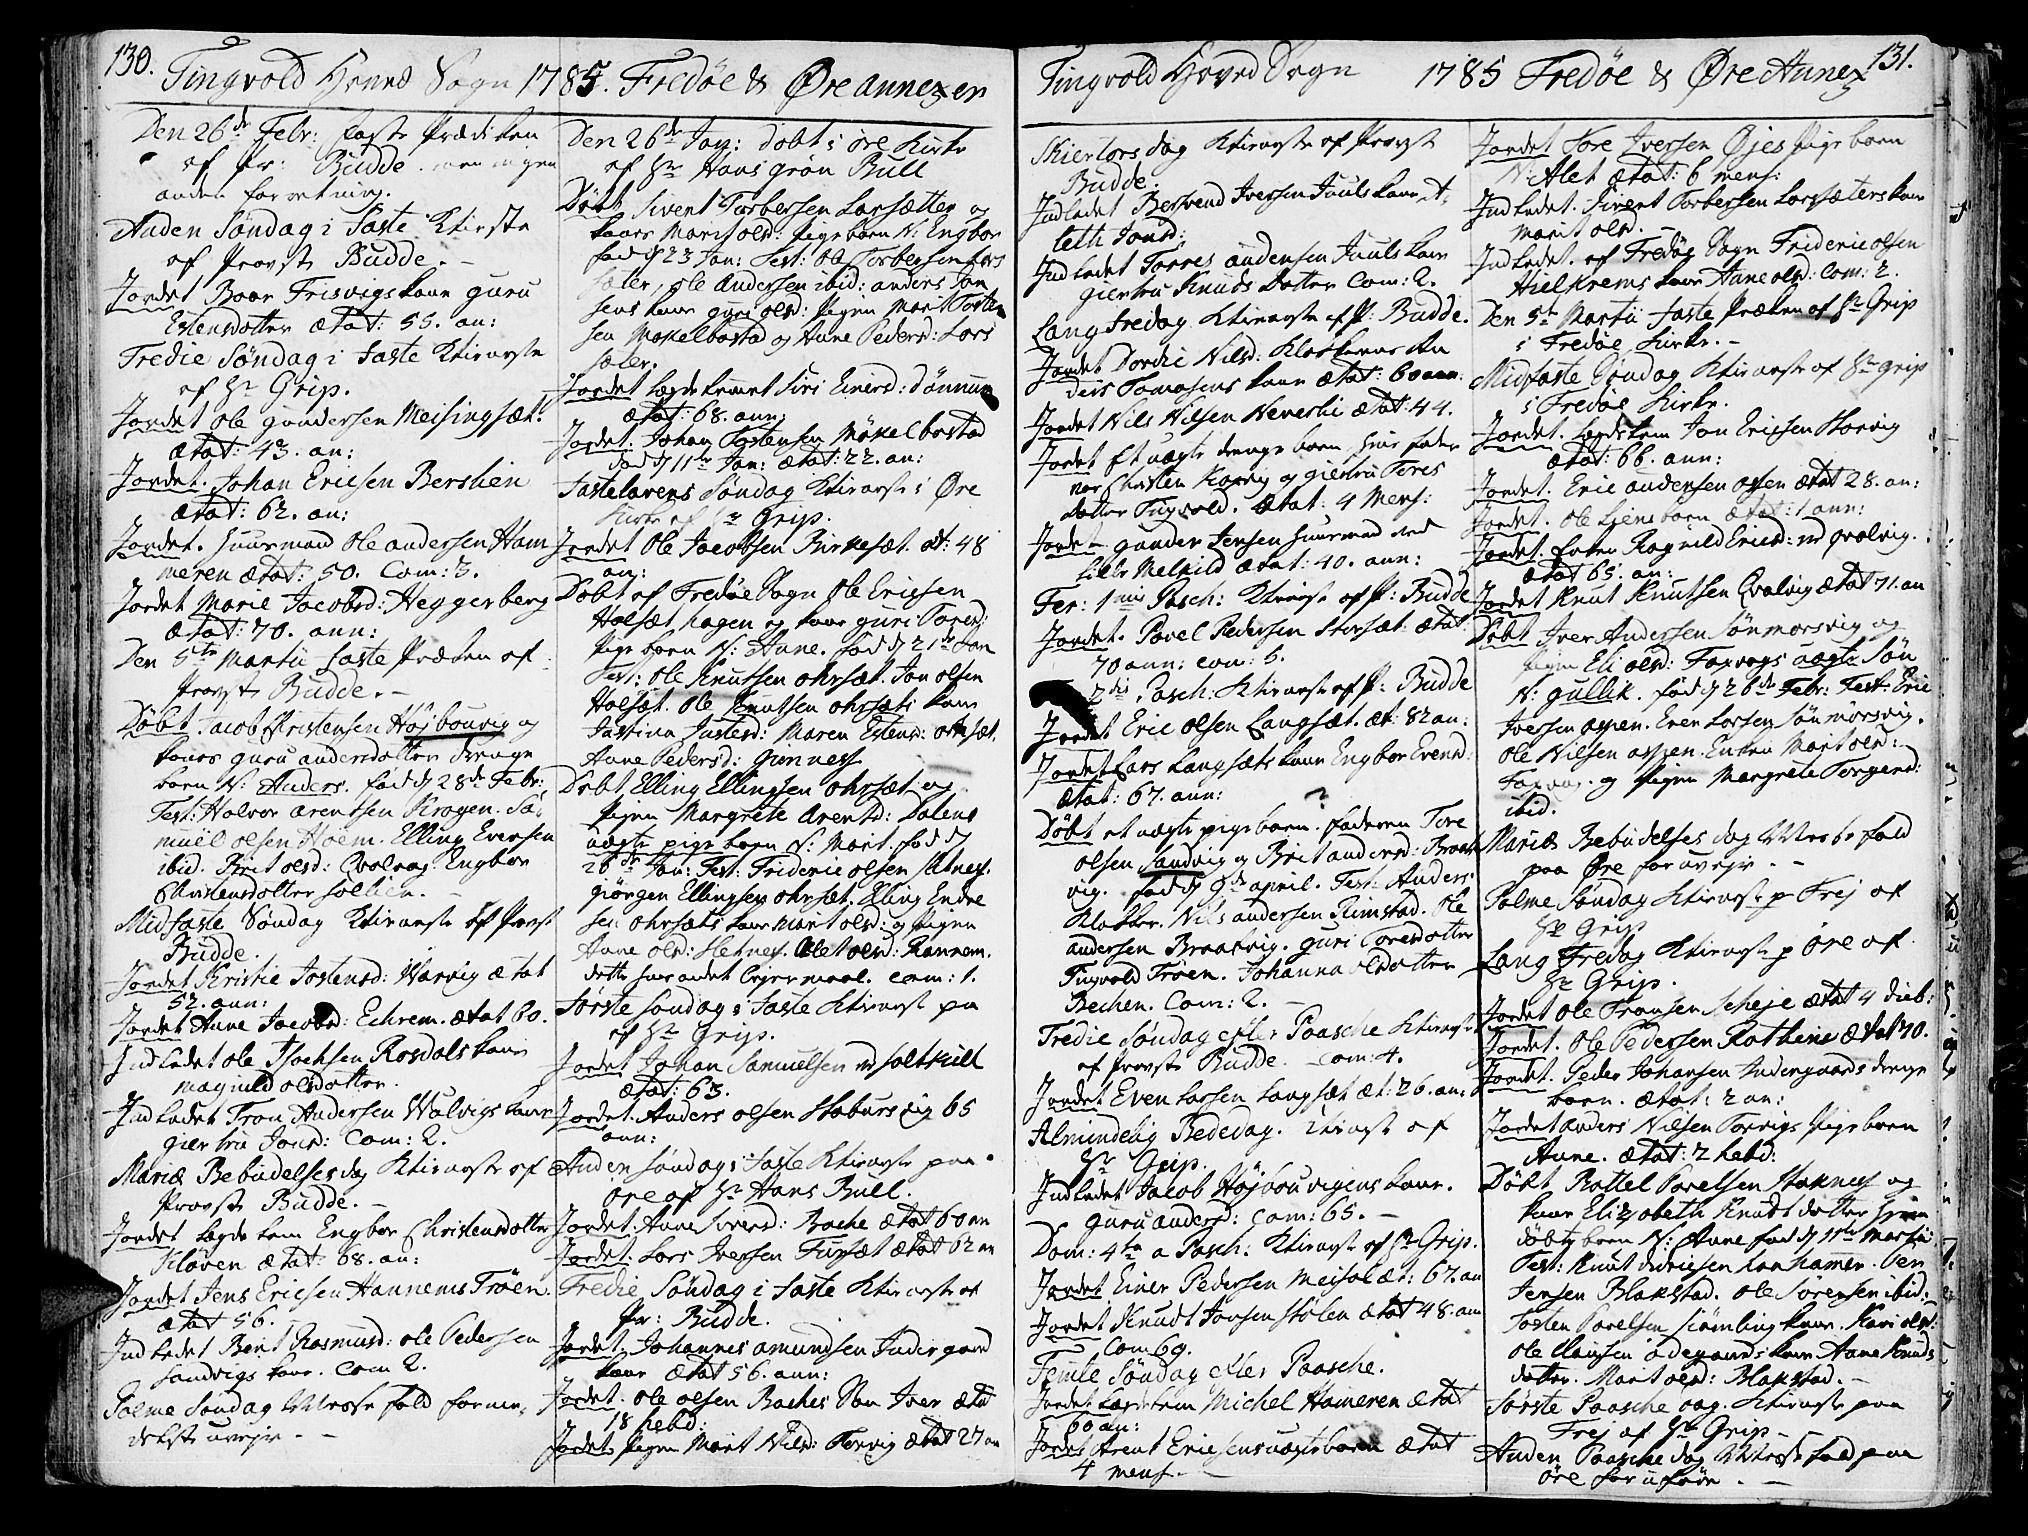 130.
Tingvold Hoved Sogn 1785. Fredøe & Øre annexer
Den 26de Febr: Faste Prædiken
af Pr: Budde. men ingen
anden forretning.
Anden Søndag i Faste
af Provst Budde. -
Jordet Boar Frisvigs kone guru
Estensdatter ætat: 55. an:
Tredie Søndag i Faste
af Hr Grip.
Jordet Ole gundersen Meisingsæt.
ætat: 43. an:
Jordet. Johan Ericsen Berslien
ætat: 62. an:
Jordet. Huusmand Ole andersen Ham
meren ætat: 50. Com: 3.
Jordet Marie Jacobsd: Heggerberg
ætat: 70. ann:
Den 5te Martii Faste Præken af
Provst Budde. -
Døbt. Jacob Christensen Højbouvig og
kones guru andersdatter drenge
barn N: Anders. fød d 28de Febr:
Test: Halvor arentsen Krogen. Sa
muel olsen Hoem. Elling Evensen
ibid. Brit olsd: Qvalvag. Engbor
Christensdotter
Midfaste Søndag af Provst
Budde.
Jordet Kristie Jostensd: Warvig ætat
52. ann:
Jordet Anne Jacobsd: Echrem. ætat 60.
Indledet Ole Rosdals kone
magnild olsdotter.
Indledet Tron Andersen Walvigs kone
giertru Jonsd: Com: 2.
Mariæ Bebudelsesdag af
Provst Budde.
Jordet Lægdslem Engbor Christensdotter
Kløven ætat: 68. an:
Jordet Jens Ericsen Hannems Trøen.
ætat 56.
Indledet Berit Rasmusd: ole Pedersen
Sandvigs kone. Com 2.
Palme Søndag Messe fald formed
delst uvejr. -
Den 26de Jan: døbt i Øre Kirke
af Hr Hans grøn Bull
Døbt Sivert Torbersen Larsætter og
kones Marit olsd: Pigebarn N: Engbor
fød d 23 Jan: Test: Ole Torbersen Lars
sæter, ole Andersen ibid: anders Jon
sens kone guri olsd: Pigen Marit Tosten
sen Mækelbostad og Anne Pedersd: Lars
sæter.
Jordet Lægdslemet Siri Einersd:
ætat: 68. ann:
Jordet. Johan Tostensen Mækelbostad
død d 11te Jan: ætat: 22. an:
Fastelavens Søndag i Øre
Kirke af Hr Grip.
Jordet Ole Jacobsen Birkesæt. æt: 48
an:
Døbt af Fredøe Sogn Ole Ericsen
Holsæt hagen og kone guri Toresd:
Pigebarn N: Anne. fød d 21de Jan
Test: Ole Knutsen ohrsæt. Jon olsen
Holsæt. Ole Knutsen ohrsæts kone
Justina Justesd: Maren Estensd: ohrsæt.
Anne Pedersd: Gimness
Døbt, Elling Ellingsen ohrsæt og
Pigen Margrete Arentsd: Dalens
uægte pigebarn N: Marit. fød d
26de Jan: Test: Frideric olsen
giørgen Ellingsen ohrsæt. Elling Endre
sen ohrsæts kone Marit olsd: og Pigen
Anne olsd: Aletolsd: Rannem.
dette hendes andet Lejermaal. Com: 1.
Første Søndag i Faste paa
af Hr Grip.
Jordet Johan Samuelsen
ætat: 63.
Jordet. Anders olsen Staburs vig 65
ann:
Anden Søndag i Faste paa
Øre af Hr Hans Bull.
Jordet. Anne Sivertsd: Bache ætat 60 an
Jordet. Lars Iversen Fursæt ætat 62 an
Tredie Søndag i Faste af
Pr: Budde.
Jordet Johannes amundsen Indergaard
kone ætat 56. ann:
Jordet. Ole olsen Baches Søn Iver ætat
18 hebd:
Jordet Pigen Marit Nilsd: Torvig ætat 27 an
131.
Tingvold Hoved Sogn 1785 Fredøe & Øre Annex
Skiertorsdag af Provst
Budde.
Indledet Iversen Juuls kone
leth Jonsd:
Indledet Torres andersen Juuls kone
giertru Knuds Datter Com: 2.
Lang Fredag af P: Budde.
Jordet Dordie Nilsd: Klokkerens An
ders Tomasens kone ætat: 60 ann:
Jordet Nils Nilsen Neverlie ætat: 44.
Jordet Et uægte drenge barn
Christen Korvig og giertru Tores
datter Tingvold. ætat: 4 mens:
Jordet gunder Jensen huusmand ved
Lille Melkild ætat: 40. ann:
Fer: 1mis Pasch: af P: Budde
Jordet. Povel Pedersen Storsæt. ætat
70 ann: com: 5.
2dis Pasch: af P: Budde
Jordet Eric olsen Langsæt. æt: 82 an:
Jordet Lars Langsæts kone Engbor Evensd:
ætat: 67. ann:
Døbt et uægte pigebarn. faderen Tore
olsen Sandvig og Brit andersd: Braat
vig. fød d 9de april. Test: Anders
Klokker. Nils andersen Rimstad. Ole
andersen Braatvig. guri Toresdotter
Tingvold Trøen. Johanna olsdotter
Bechen. Com: 2. -
Tredie Søndag efter Paasche
af Provst Budde. com: 4.
Jordet Even Larsen Langsæt æt: 26. an:
Almindelig Bededag. af
Hr Grip.
Indledet Jacob Højbouvigens kone.
guru andersd: com: 65. -
Dom: 4ta a Pasch: af Hr Grip.
Jordet Einer Pedersen Meisal æt: 67. an
Jordet Knudt Jonsen Stolen ætat 48. an
Com 69.
Femte Søndag efter Paasche.
Jordet Lægdslem Michel Hameren ætat
60 an:
Jordet Arent Ericsens uægte barn ætat
4 mens. -
Jordet Tore Iversen Øjes Pigebarn
N: Alet ætat: 6 mens:
Indledet. Sivert Torbersen Larssæters kone
Marit olsd. -
Indledet. af Fredøe Sogn Frideric olsen
Hielkrems kone Anne olsd: com: 2.
Den 5te Martii Faste Præken af Hr Grip
i Fredøe Kirke. -
Midfaste Søndag af Hr grip
i Fredøe Kirke.
Jordet. Lægdslem Jon Ericsen Storvig
ætat: 66. ann:
Jordet. Eric andersen aspen ætat 28. an:
Jordet. Ole barn ætat: 1 ann:
Jordet. Enken Ragnild Ericsd: ved Qvalvig.
ætat 65. an:
Jordet Knut Knutsen Qvalvig ætat 71. an
Døbt Iver Andersen Sønmørsvig og
pigen Eli olsd: Foxvogs uægte Søn
N: gullik. fød d 26de Febr: Test: Eric
Iversen aspen. Even Larsen Sønmørsvig.
Ole Nilsen aspen. Enken Marit olsd:
Foxvog. og pigen Margrete Torgersd:
ibid.
Mariæ Bebudelses dag Messe fald
paa Øre for uvejr. -
Palme Søndag p Frej af
Hr Grip
Lang Fredag p Øre af
Hr Grip.
Jordet Ole Fransen Scheje ætat 4 dieb:
Jordet. Ole Pedersen Rothene ætat 70.
Jordet. Peder Johansen Indergaards drenge
barn. ætat: 2 an:
Jordet anders Nilsen Torvigs Pigebarn
Anne. ætat: 2 hebd:
Døbt Rottel Povelsen Staknes og
kone Elizabeth Knudtdotter hjem
døbt barn N: Anne fød d 11te Martii
Test: Knut Larihamer. Ben
Jensen Blakstad. Ole Sørensen ibid:
Tosten Povelsen kone. Kari olsd:
Ole Clausen ødegaards kone. Anne Knuds
dotter. Marit olsd: Blakstad. -
Første Paasche dag. paa
Frej af Hr Grip -
Anden Paasche dag Messe fald paa
Øre for uføre. -